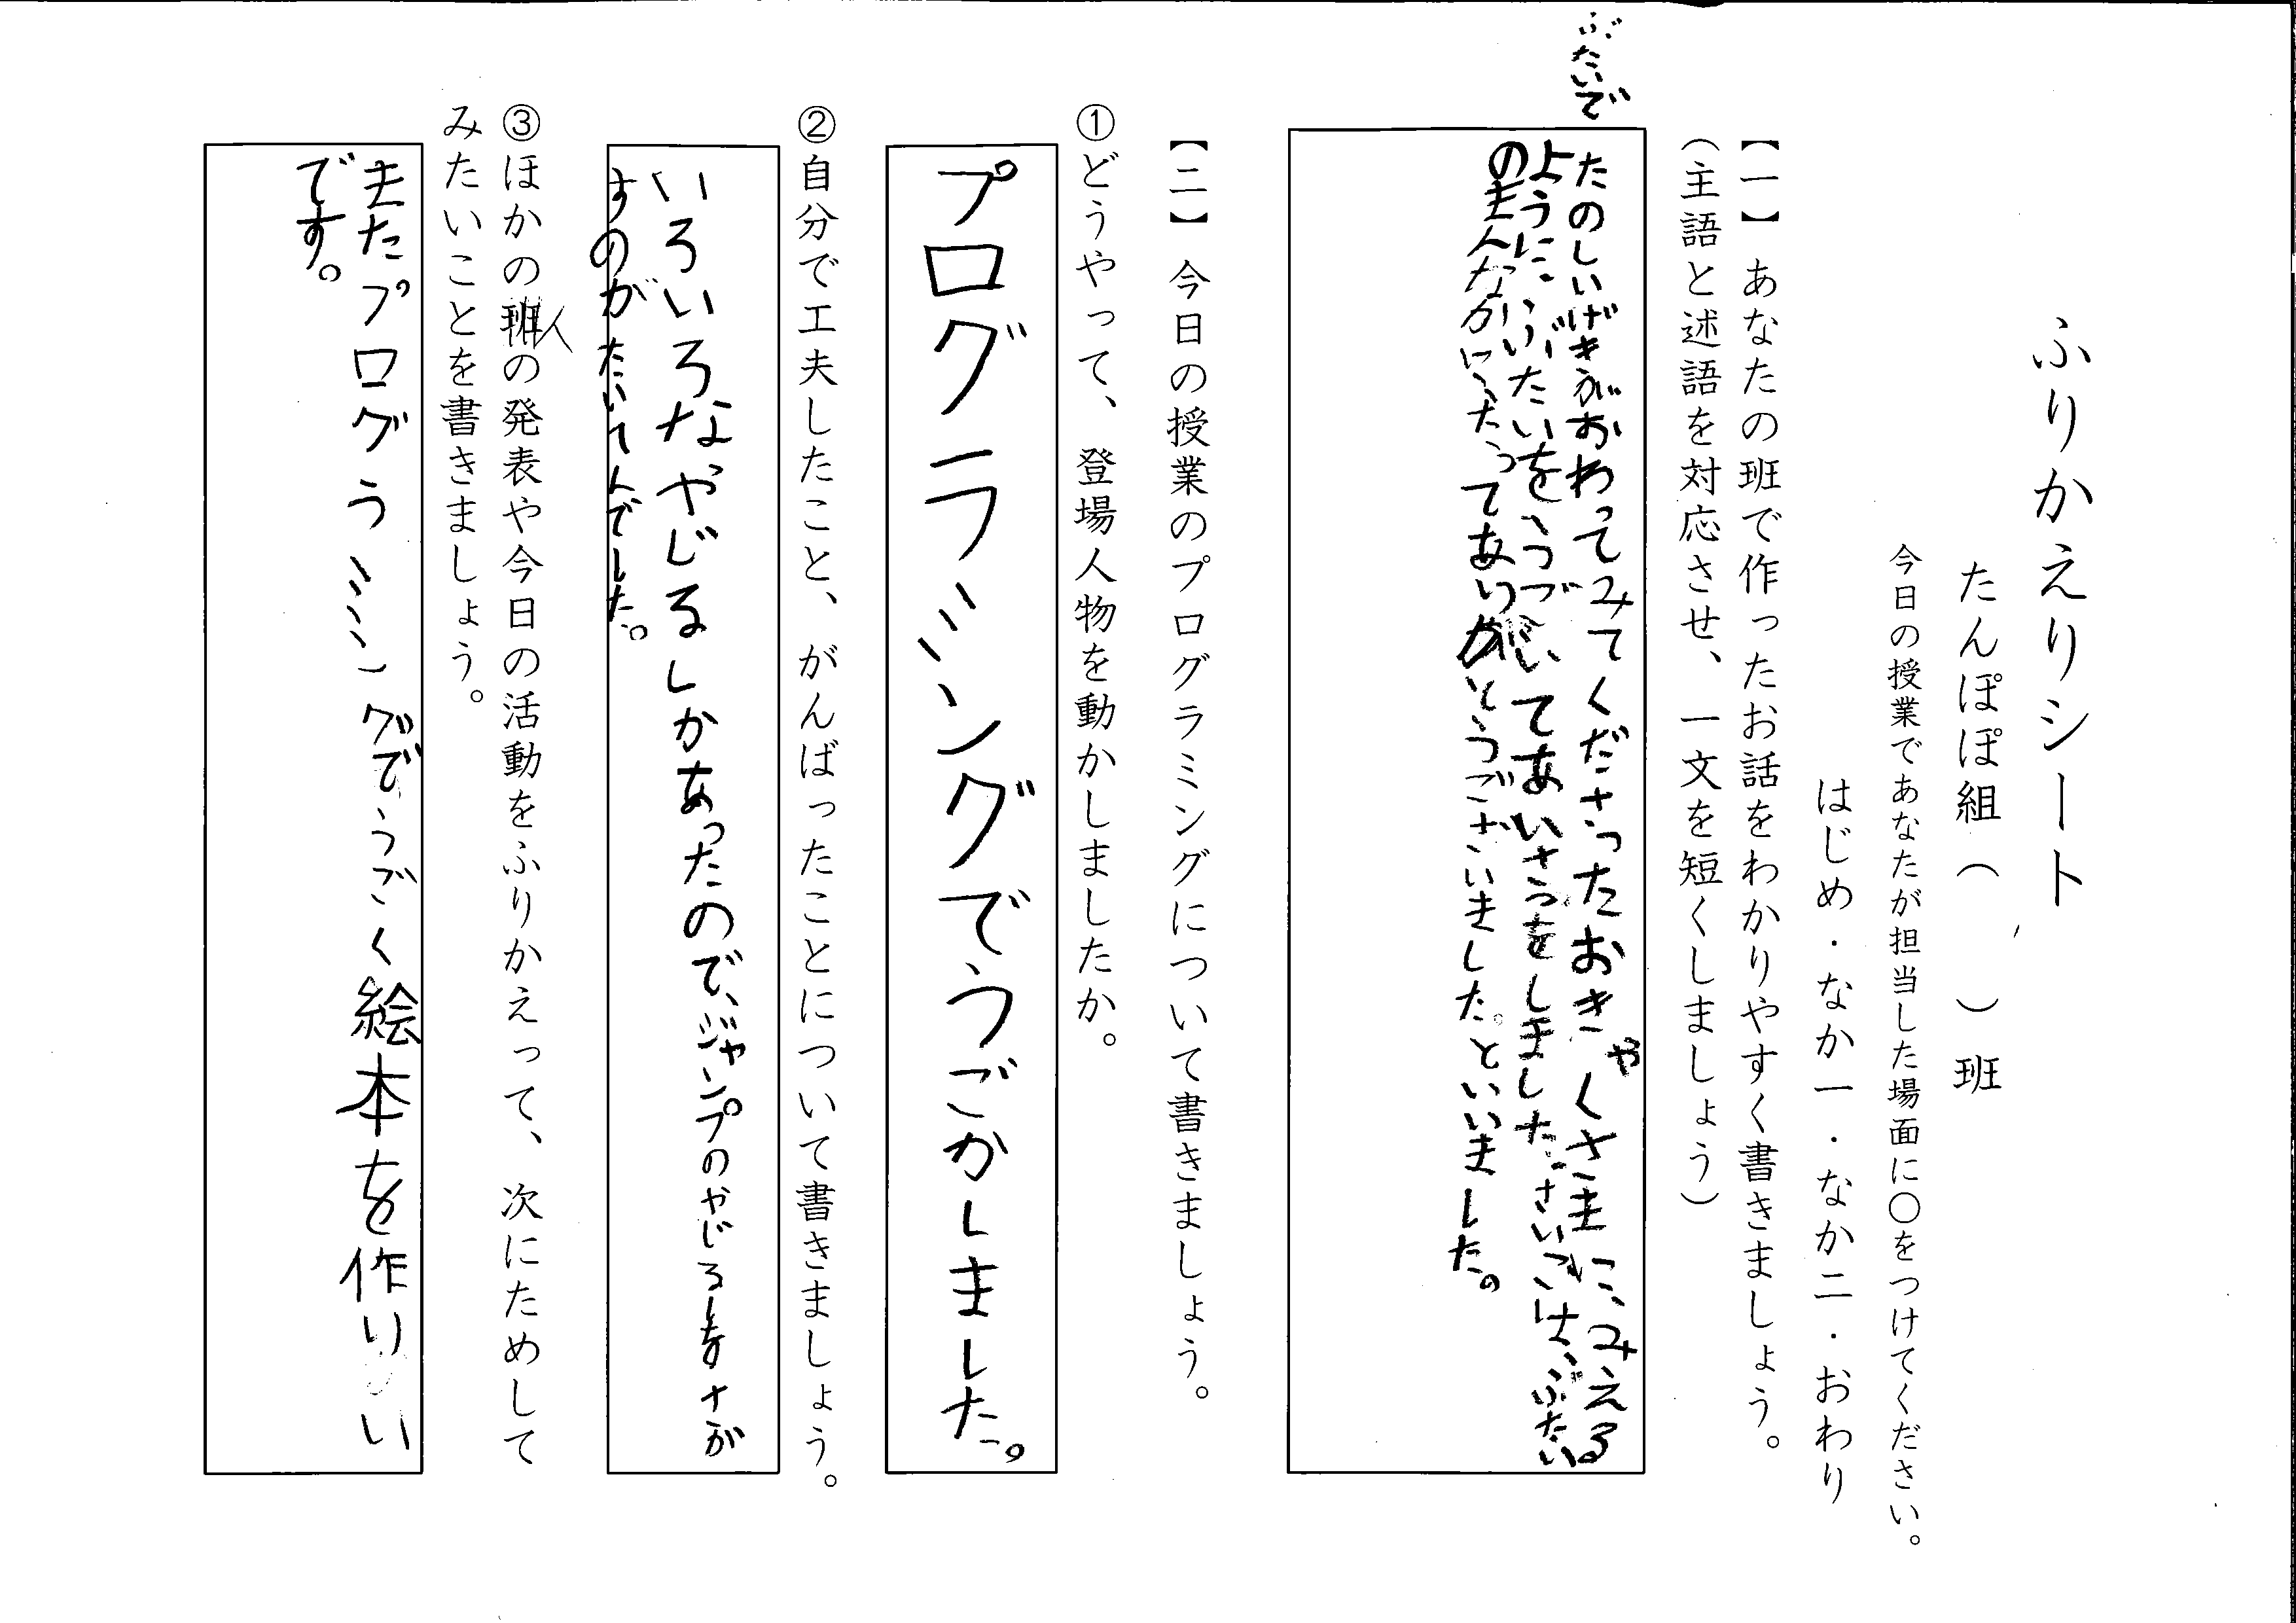 ふりかえりシート
たんぽぽ組（　　）班
今日の授業であなたが担当した場面に〇をつけてください。
はじめ・なか一・なか二・おわり
【一】あなたの班で作ったお話をわかりやすく書きましょう。
（主語と述語を対応させ、一文を短くしましょう）
ぶたいで
たのしいげきがおわってみてくださったおきゃくさまに、みえる
ように、いいたいをうごいてあいさつをしました。さいごは、ぶたい
のまんなかにたってありがとうございました。といいました。
【二】今日の授業のプログラミングについて書きましょう。
①どうやって、登場人物を動かしましたか。
プログラミングでうごかしました。
②自分で工夫したこと、がんばったことについて書きましょう。
いろいろなやじるしがあったので、ジャンプのやじるしをさが
すのがたいへんでした。
③ほかの班人の発表や今日の活動をふりかえって、次にためして
みたいことを書きましょう。
またプログラミングでうごく絵本を作りたい
です。